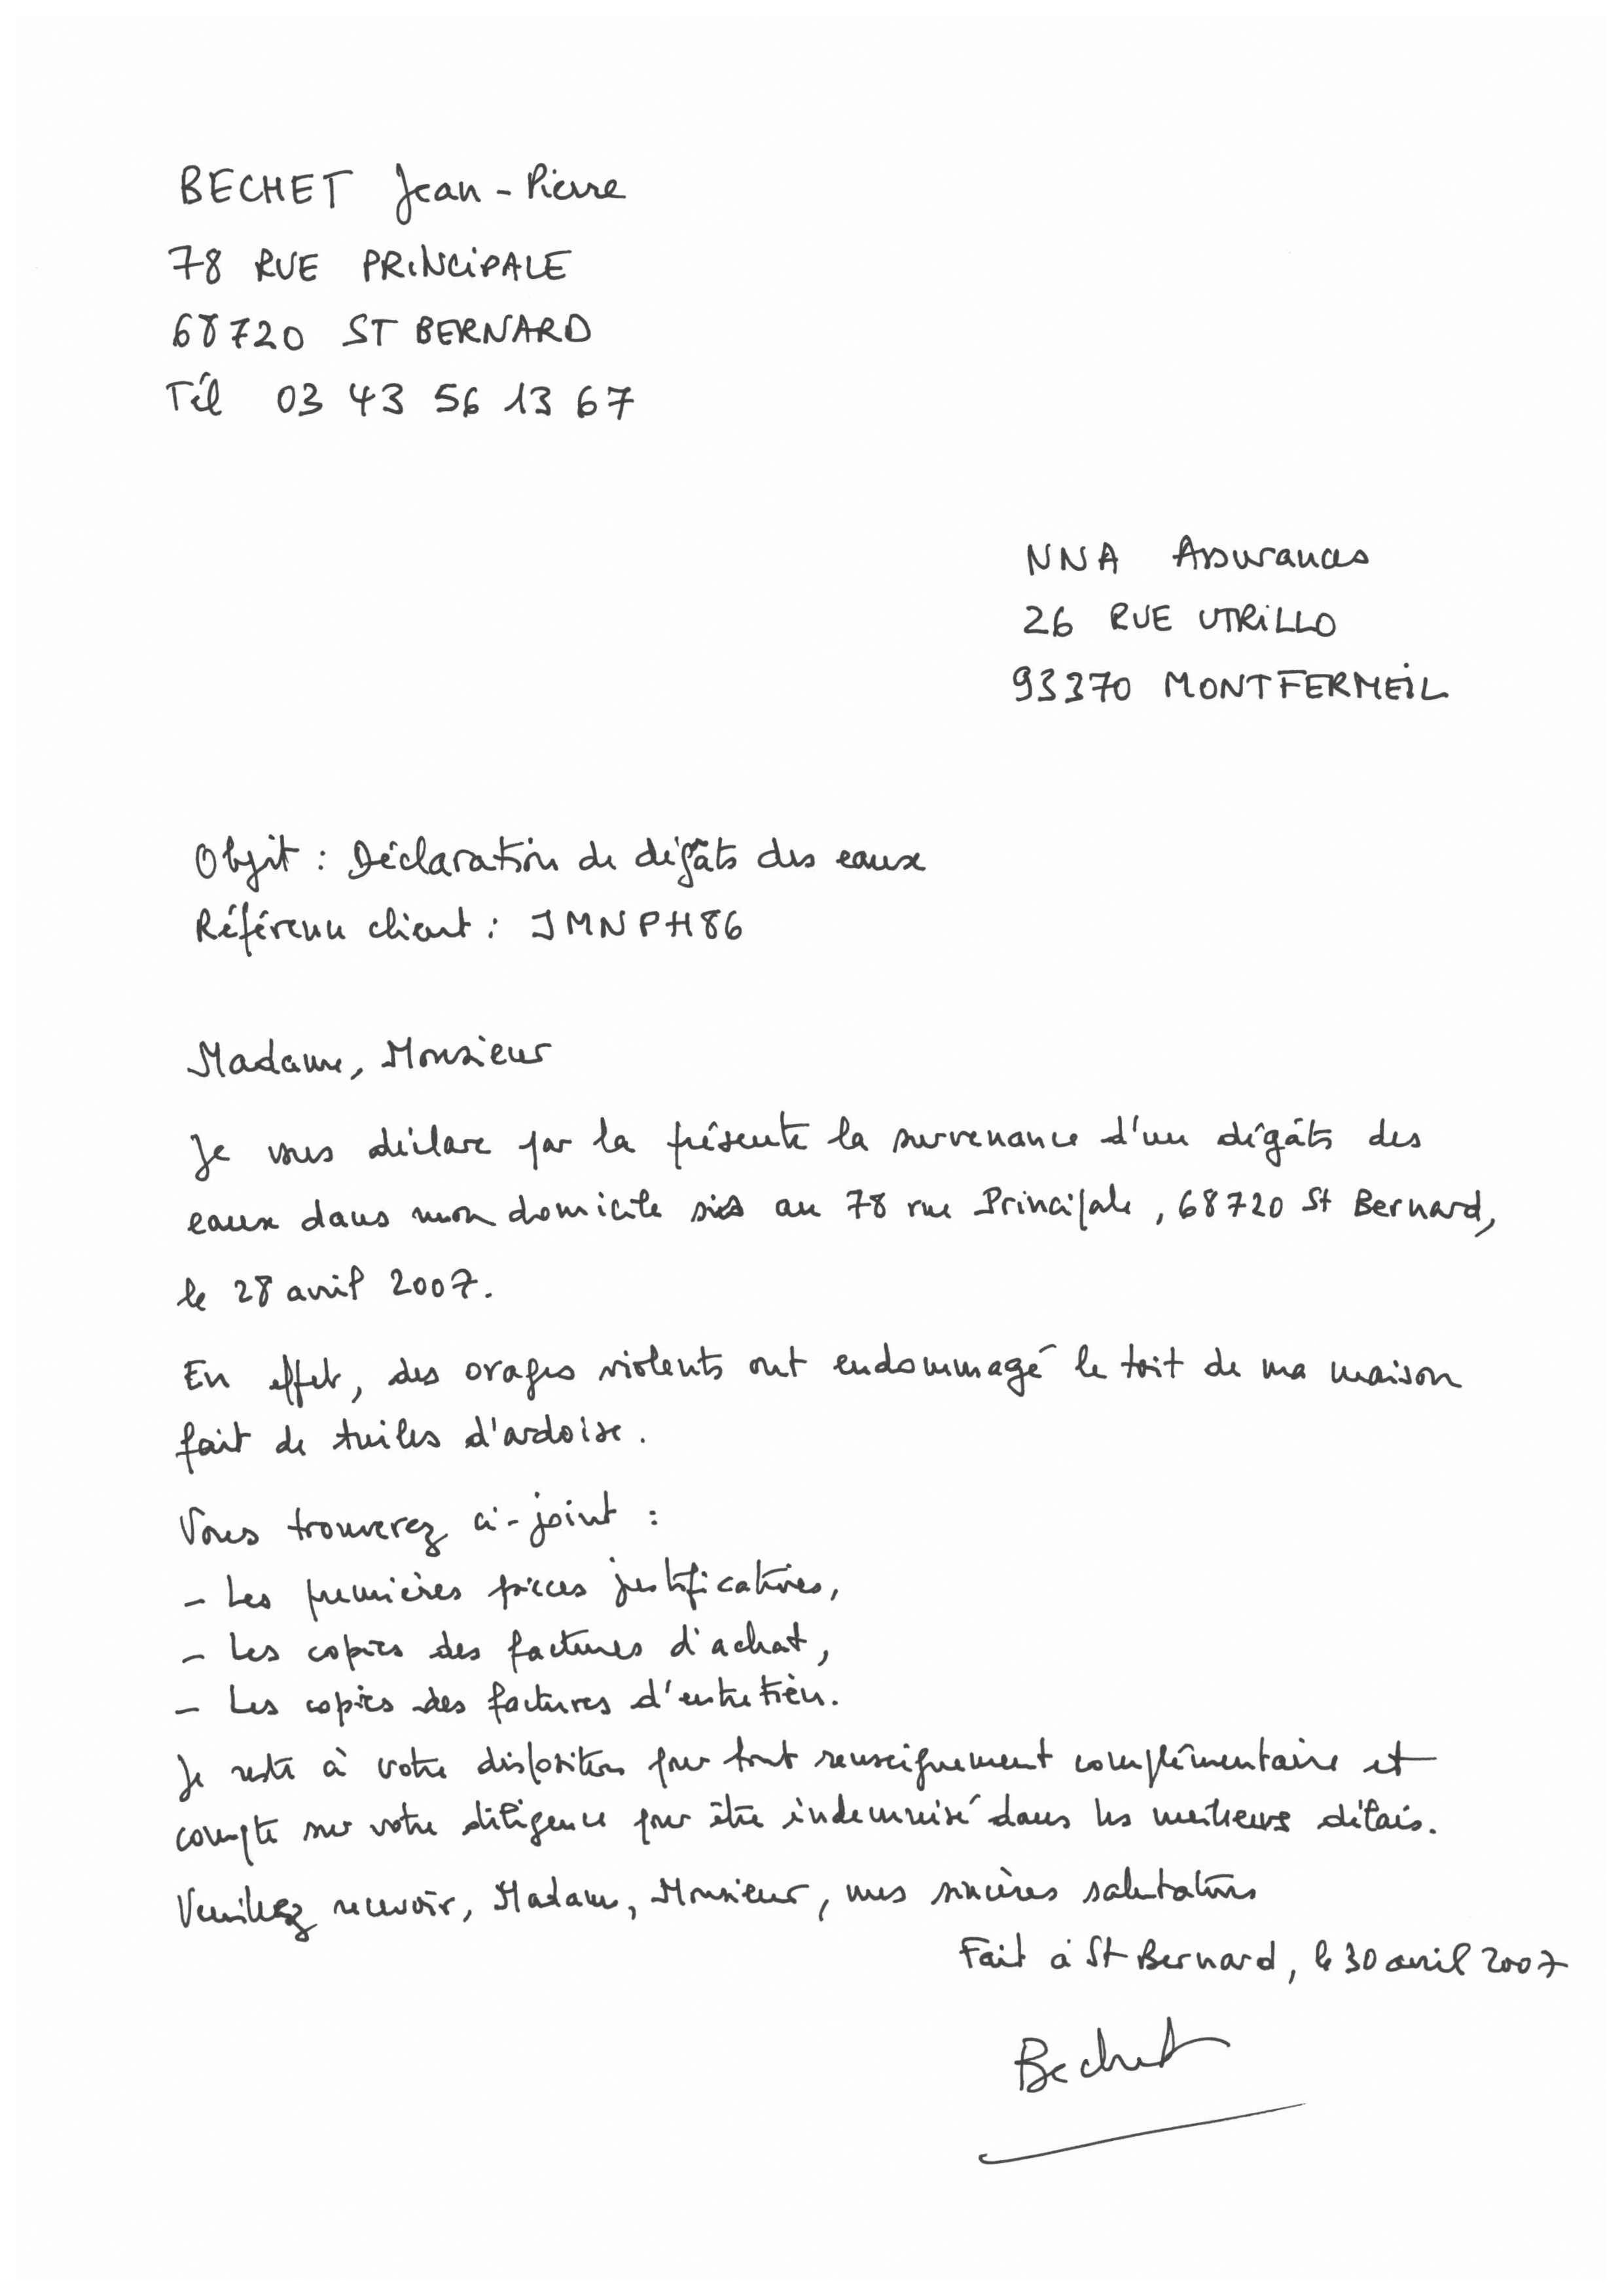 BECHET Jean-Pierre
78 RUE PRINCIPALE
68720 ST BERNARD
Tél 03 43 56 13 67
NNA Assurances
26 RUE UTRILLO
93370 MONTFERMEIL
Objet : Déclaration de dégâts des eaux
Référence client : JMNPH86
Madame, Monsieur
Je vous déclare par la présente la survenance d'un dégâts des
eaux dans mon domicile sis au 78 rue Principale, 68720 St Bernard,
le 28 avril 2007.
En effet, des orages violents ont endommagé le toit de ma maison
fait de tuiles d'ardoise.
Vous trouverez ci-joint :
- Les premières pièces justificatives,
- Les copies des factures d'achat,
- Les copies des factures d'entretien.
Je reste à votre disposition pour tout renseignement complémentaire et
compte sur votre diligence pour être indemnisé dans les meilleurs délais.
Veuillez recevoir, Madame, Monsieur, mes sincères salutations
Fait à St Bernard, le 30 avril 2007
Bechet